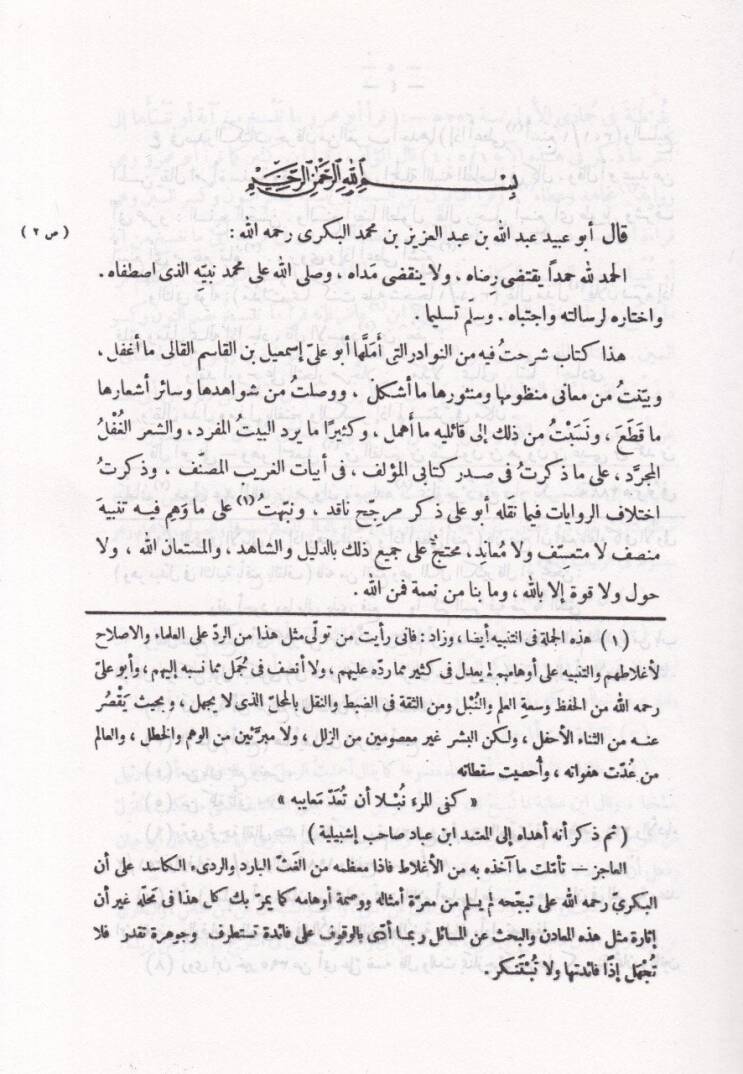 بسم الله الرحمن الرحيم
قال أبو عبيد عبد الله بن عبد العزيز بن محمد البكرى رحمه الله :
( ص ٢ )
الحمد لله حمداً يقتضى رِضاه . ولا ينقضى مَداه ، وصلى الله على محمد نبيّه الذى اصطفاه .
واختاره لرسالته واجتباه . وسلّم تسليما .
هذا كتاب شرحتُ فيه من النوادر التى أملّها أبو علىّ إسمعيل بن القاسم القالى ما أغفل ،
وبيّنتُ من معانى منظومها ومنثورها ما أشكل . ووصلتُ من شواهدها وسائر أشعارها
ما قَطَعَ ، ونَسَبْتُ من ذلك إلى قائليه ما أهمل . وكثيرًا ما يرد البيتُ المفرد . والشعر الغُفْلُ
المجرَّد ، على ما ذكرتُ فى صدر كتابى المؤلف ، فى أبيات الغريب المصنف . وذكرتُ
اختلاف الروايات فيما نقله أبو على ذكر مرجح ناقد ، ونبّهتُ (١) على ما وَهِم فيه تنبيهَ
منصف لا متعسِّف ولا مُعاند . محتجٍّ على جميع ذلك بالدليل والشاهد ، والمستعان الله ، ولا
حول ولا قوة إلا بالله ، وما بنا من نعمة فمن الله .
(١) هذه الجملة فى التنبيه أيضا ، وزاد : فانى رأيت من تولّى مثل هذا من الردّ على العلماء والاصلاح
لأغلاطهم والتنبيه على أوهامهم لم يعدل فى كثير مما ردّه عليهم ، ولا أنصف فى جُمَل مما نسبه إليهم ، وأبو علىّ
رحمه الله من الحفظ وسعةِ العلم والنُبْل ومن الثقة فى الضبط والنقل بالمحلّ الذى لا يجهل ، وبحيث يَقْصُر
عنه من الثناء الأحفل ، ولكن البشر غير معصومين من الزلل ، ولا مبرّئين من الوهم والخطل ، والعالم
من عُدّت هفواته ، وأحصيت سقطاته
« كفى المرء نُبْلا أن تُعَدّ معايبه »
( ثم ذكر أنه أهداه إلى المعتمد ابن عباد صاحب إشبيلية )
العاجز — تأملت ما آخذه به من الأغلاط فاذا معظمه من الغَثّ البارد والردىء الكاسد على أن
البكرىّ رحمه الله على تبجّحه لم يسلم من معرّة أمثاله ووصمة أوهامه كما يمرّ بك كل هذا فى محلّه غير أن
إثارة مثل هذه المعادن والبحث عن المسائل ربما أدّى بالوقوف على فائدة تستطرف وجوهرة تقدر فلا
تُجْهَل إذًا فائدتها ولا تُسْتَنكر .